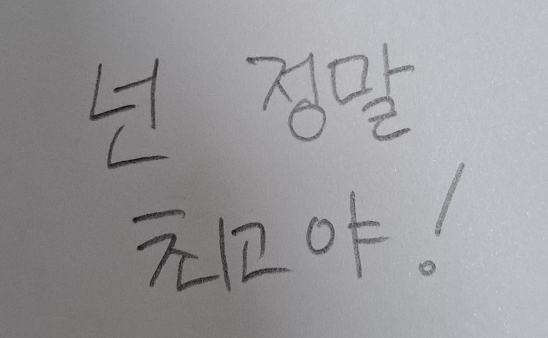 넌 정말
최고야!